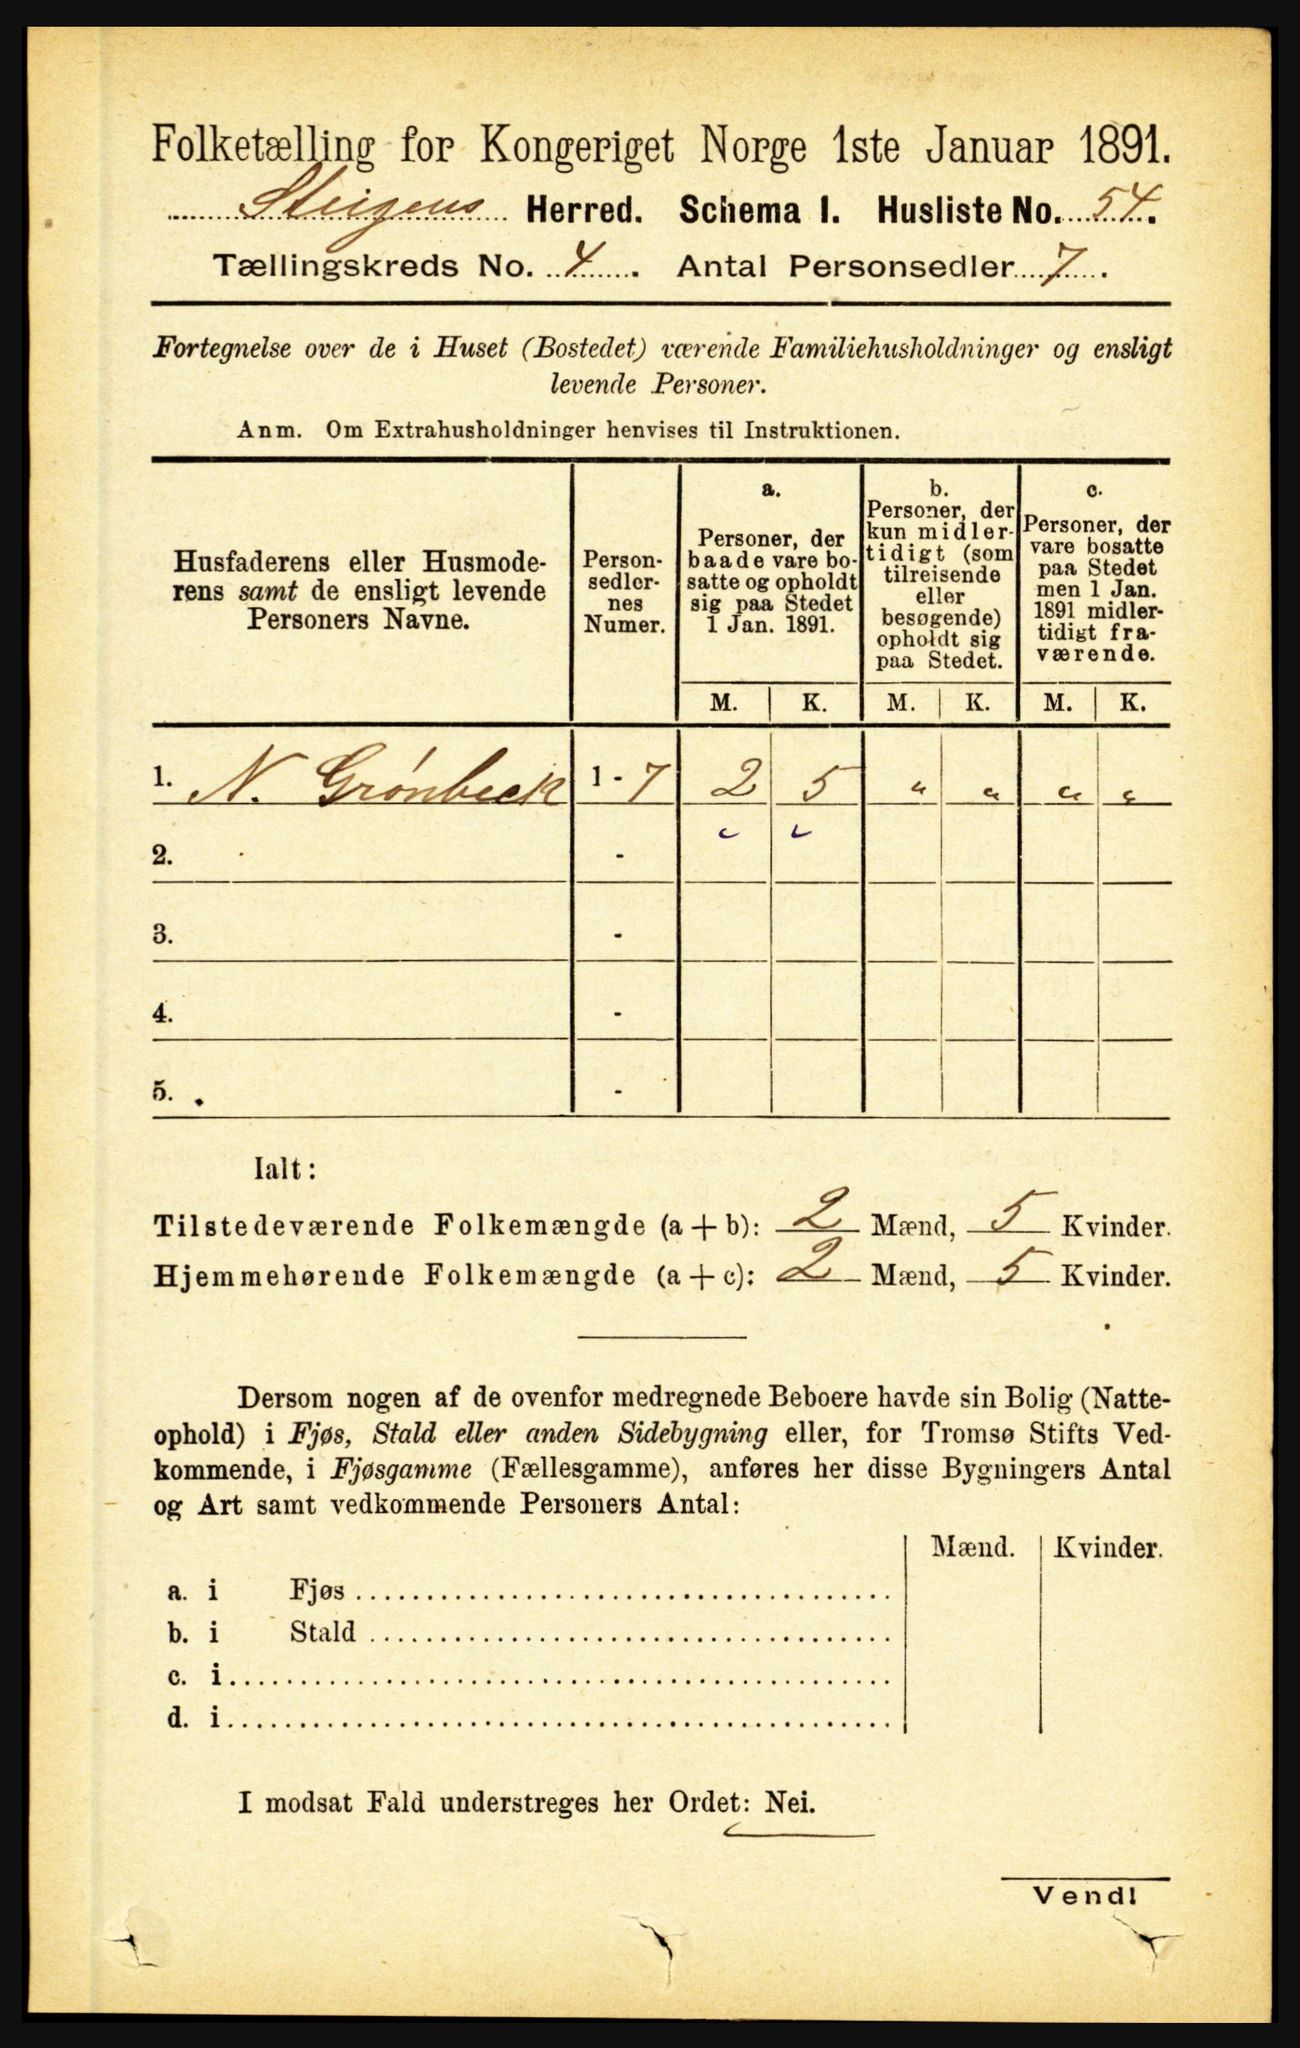 Folketælling for Kongeriget Norge 1ste Januar 1891.
Steigens Herred. Schema I. Husliste No. 54.
Tællingskreds No. 4. Antal Personsedler 7.
Fortegnelse over de i Huset (Bostedet) værende Familiehusholdninger og ensligt
levende Personer.
Anm. Om Extrahusholdninger henvises til Instruktionen.
Husfaderens eller Husmode-
rens samt de ensligt levende
Personers Navne.
Person-
sedler-
nes
Numer.
a.
Personer, der
baade vare bo-
satte og opholdt
sig paa Stedet
1 Jan. 1891.
b.
Personer, der
kun midler-
tidigt (som
tilreisende
eller
besøgende)
opholdt sig
paa Stedet.
c.
Personer, der
vare bosatte
paa Stedet
men 1 Jan.
1891 midler-
tidigt fra-
værende.
M. K. M. K. M. K.
1. N. Grønbeck 1 - 7 2 5 " " " "
2. -
3. -
4. -
5. -
Ialt:
Tilstedeværende Folkemængde (a + b): 2 Mænd, 5 Kvinder.
Hjemmehørende Folkemængde (a + c): 2 Mænd, 5 Kvinder.
Dersom nogen af de ovenfor medregnede Beboere havde sin Bolig (Natte-
ophold) i Fjøs, Stald eller anden Sidebygning eller, for Tromsø Stifts Ved-
kommende, i Fjøsgamme (Fællesgamme), anføres her disse Bygningers Antal
og Art samt vedkommende Personers Antal:
Mænd. Kvinder.
a. i Fjøs
b. i Stald
c. i
d. i
I modsat Fald understreges her Ordet: Nei.
Vend!